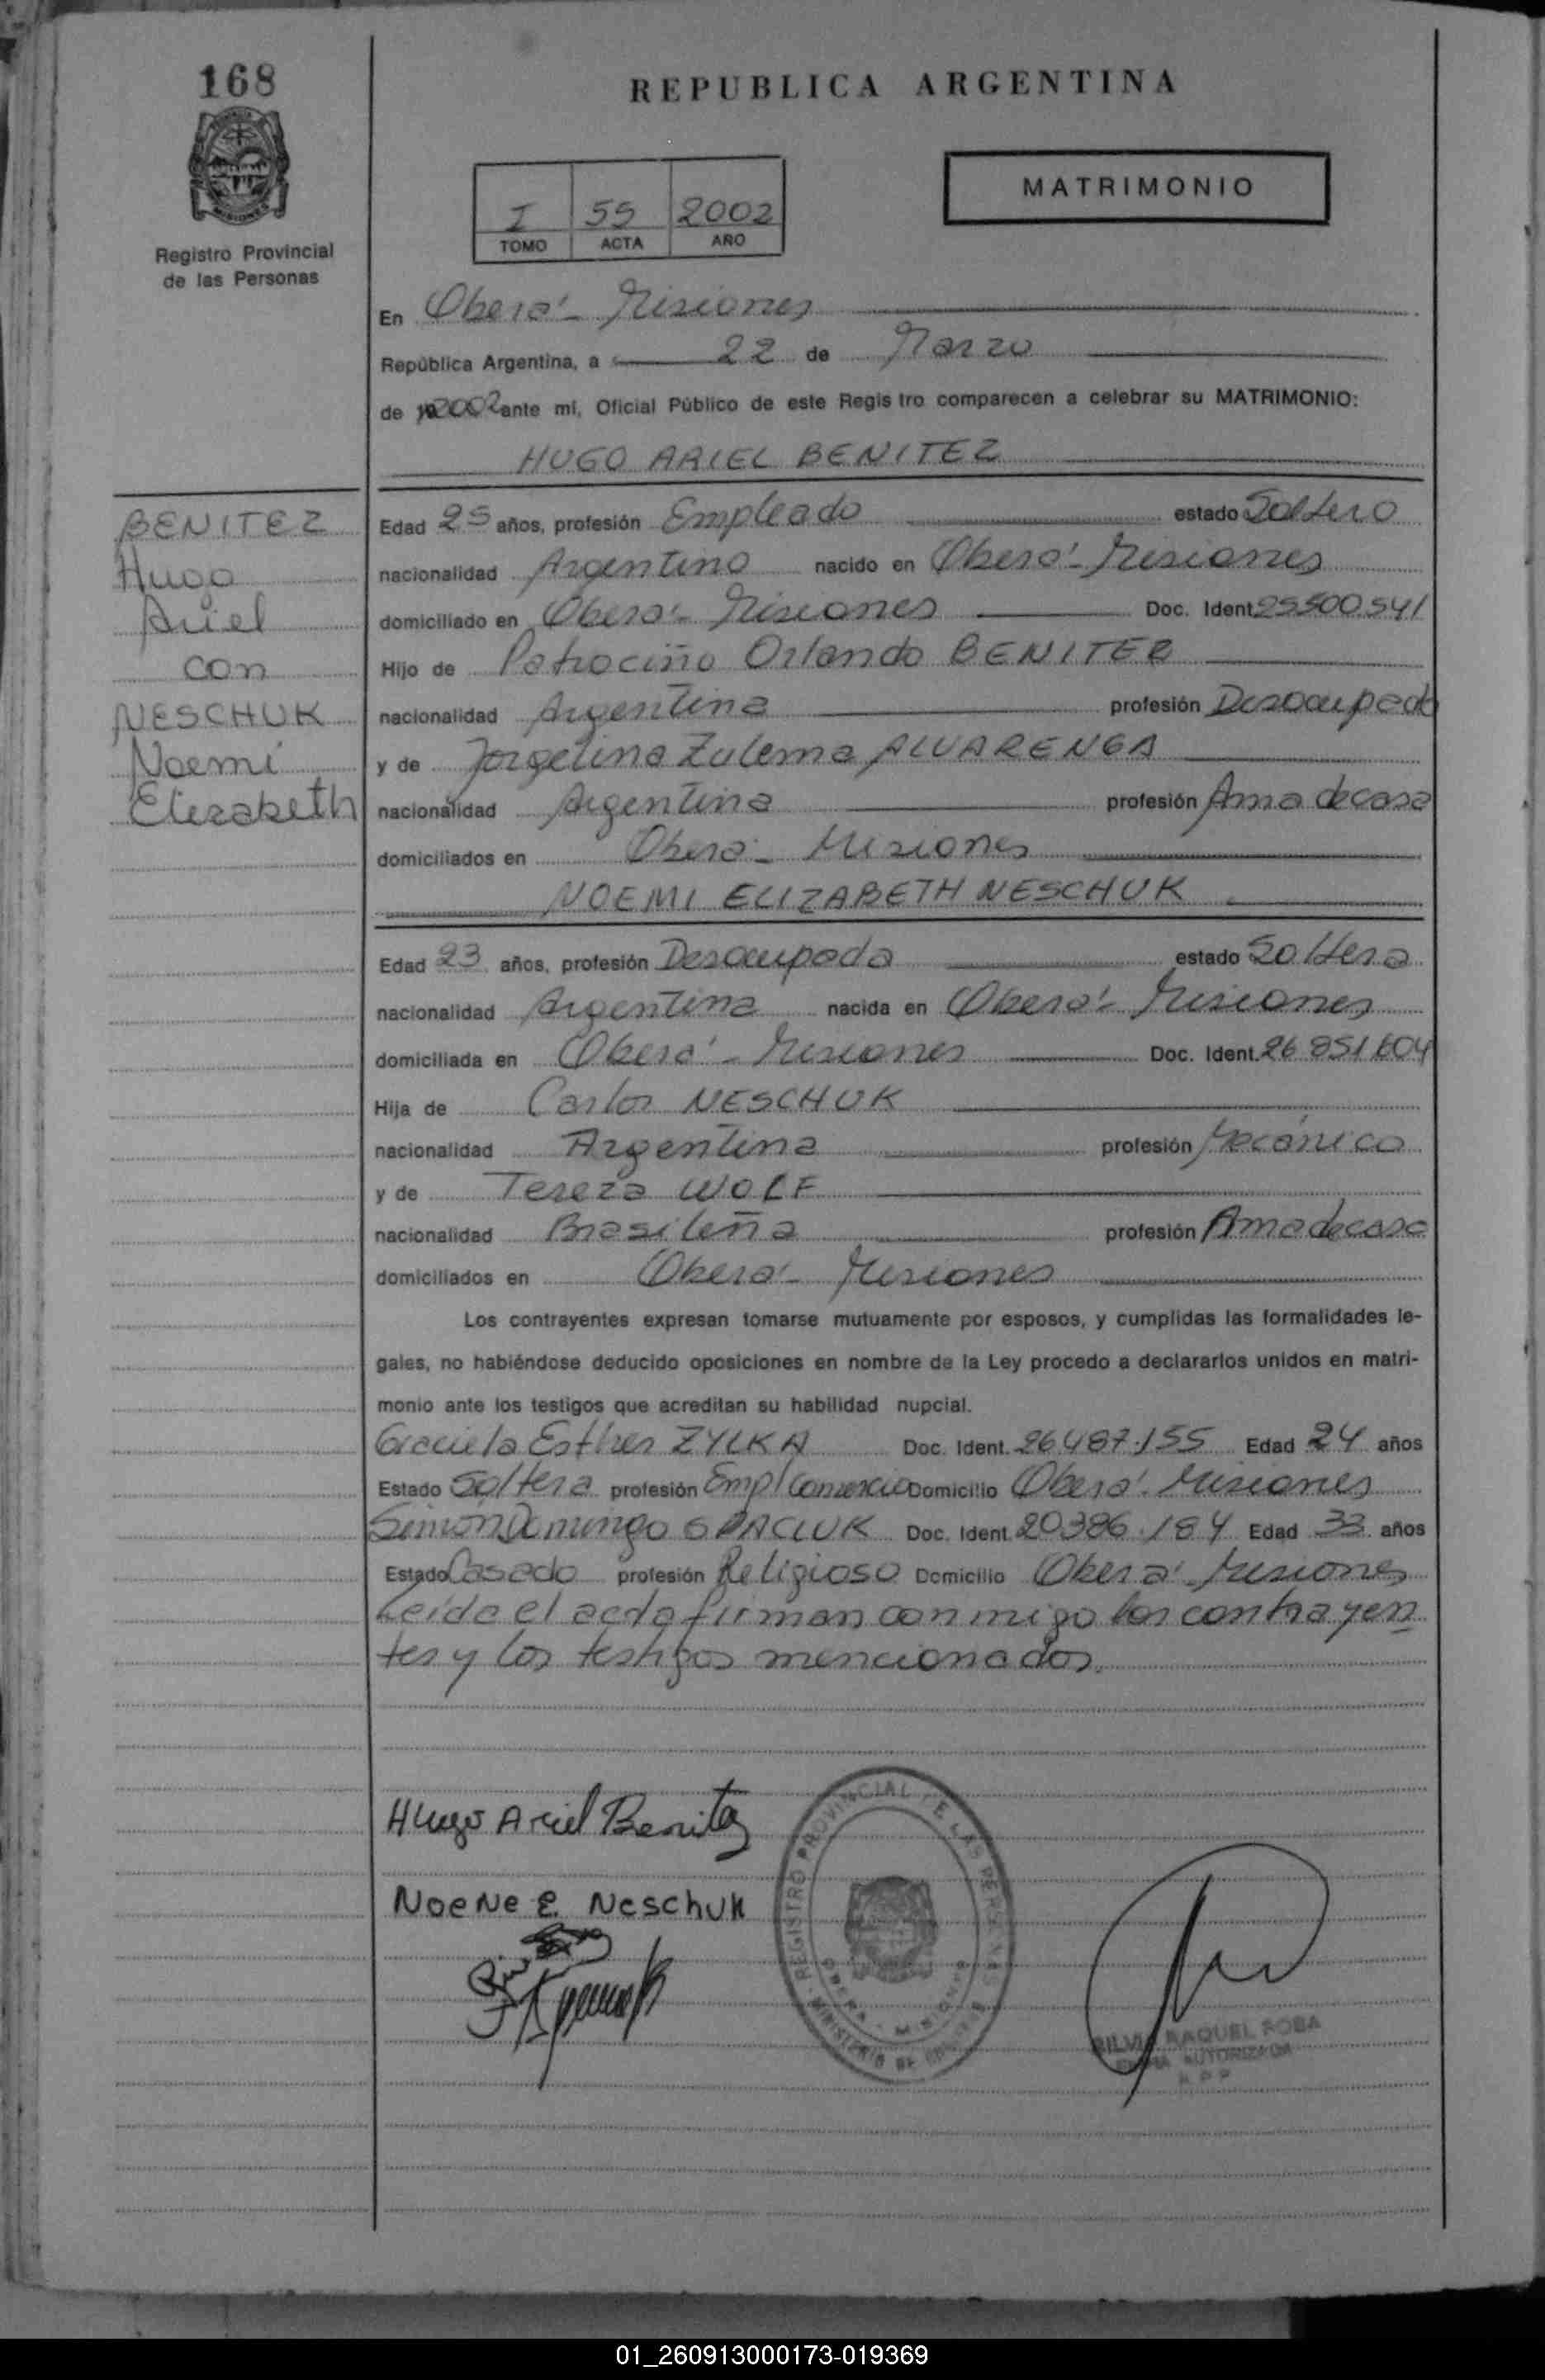 168
REPUBLICA ARGENTINA
MATRIMONIO
I 55 2002
TOMO ACTA AÑO
Registro Provincial
de las Personas
En Oberá - Misiones
República Argentina, a 22 de Marzo
de 2002 ante mi, Oficial Público de este Regis tro comparecen a celebrar su MATRIMONIO:
HUGO ARIEL BENITEZ
BENITEZ
Hugo
Ariel
con
NESCHUK
Noemi
Elizabeth
Edad 25 años, profesión Empleado estado Soltero
nacionalidad Argentino nacido en Oberá - Misiones
domiciliado en Oberá - Misiones Doc. Ident. 25500.541
Hijo de Patrociño Orlando BENITEZ
nacionalidad Argentina profesión Desocupado
y de Jorgelina Zulema ALVARENGA
nacionalidad Argentina profesión Ama de casa
domiciliados en Oberá - Misiones
NOEMI ELIZABETH NESCHUK
Edad 23 años, profesión Desocupada estado Soltera
nacionalidad Argentina nacida en Oberá - Misiones
domiciliada en Oberá - Misiones Doc. Ident. 26 851 604
Hija de Carlos NESCHUK
nacionalidad Argentina profesión Mecánico
y de Tereza WOLF
nacionalidad Brasileña profesión Ama de casa
domiciliados en Oberá - Misiones
Los contrayentes expresan tomarse mutuamente por esposos, y cumplidas las formalidades le-
gales, no habiéndose deducido oposiciones en nombre de la Ley procedo a declararlos unidos en matri-
monio ante los testigos que acreditan su habilidad nupcial.
Graciela Esther ZYLKA Doc. Ident. 26.487.155 Edad 24 años
Estado Soltera profesión Empl Comercio Domicilio Oberá - Misiones
Simón Domingo SPACIUK Doc. Ident. 20386.184 Edad 33 años
Estado Casado profesión Religioso Domicilio Oberá - Misiones
Leida el acta firman conmigo los contrayen
tes y los testigos mencionados.
Hugo Ariel Benitez
NoeNe E. Neschuk
REGISTRO PROVINCIAL DE LAS PERSONAS
OBERA - MISIONES
MINISTERIO DE GOBIERNO
SILVIA RAQUEL SOSA
FIRMA AUTORIZADA
R.P.P.
01_260913000173-019369